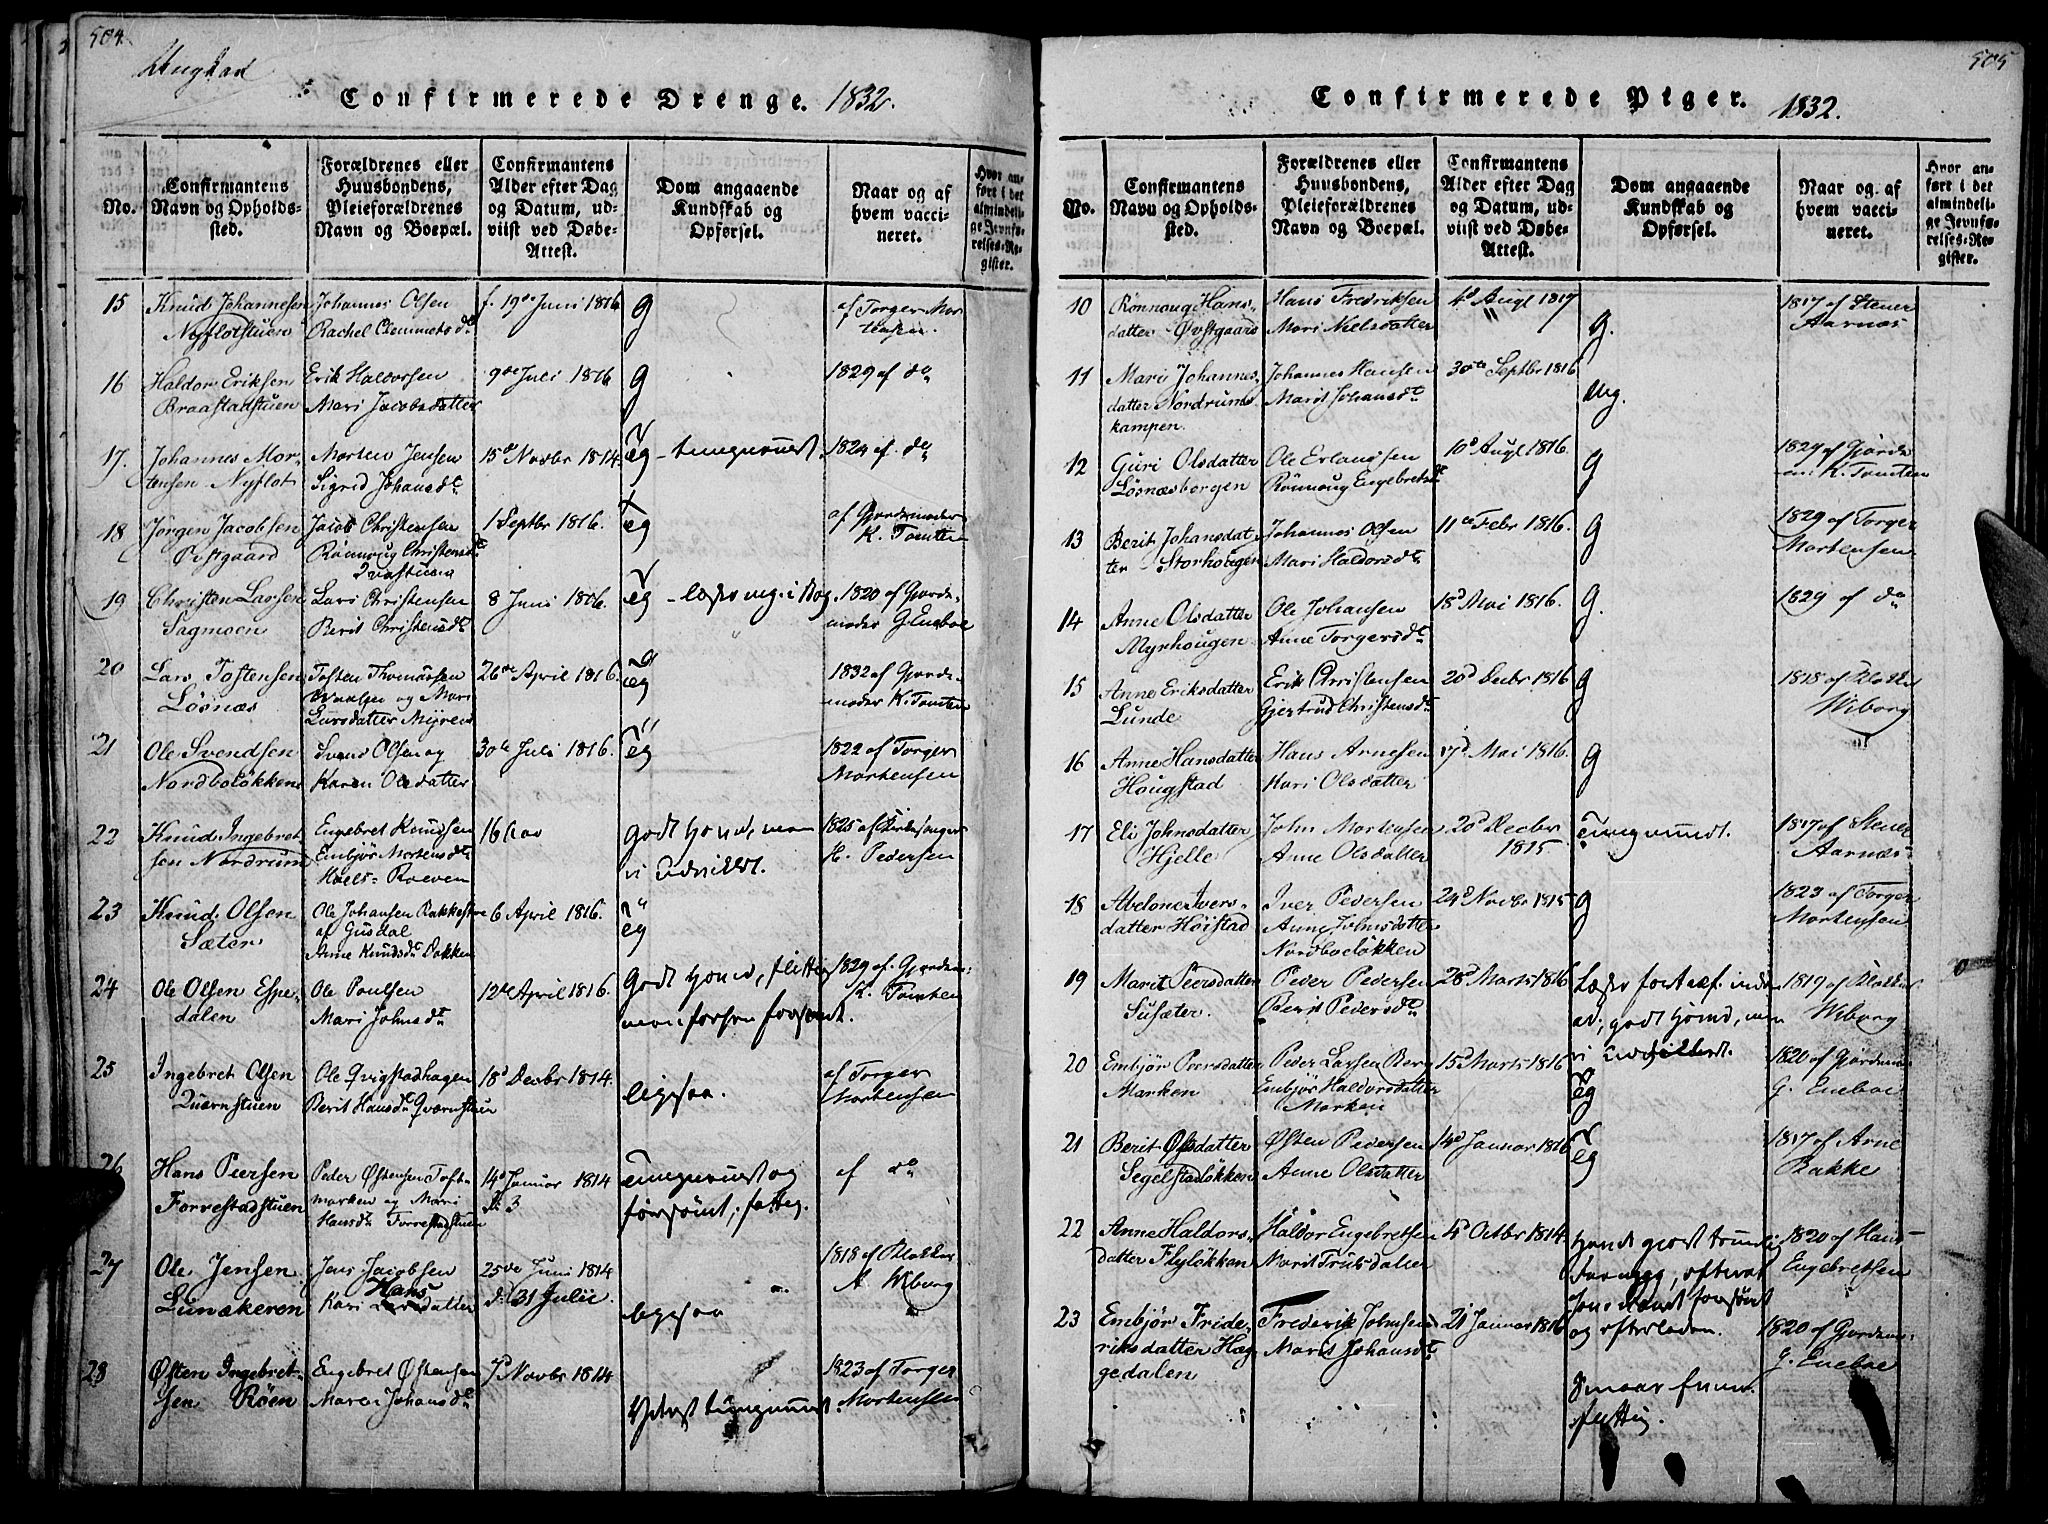 504
Confirmerede Drenge. 1832.
No.
Confirmantens
Navn og Opholds-
sted.
Forældrenes eller
Huusbondens,
Pleieforældrenes
Navn og Boepæl.
Confirmantens
Alder efter Dag
og Datum, ud-
viist ved Døbe-
Attest.
Dom angaaende
Kundskab og
Opførsel.
Naar og af
hvem vacci-
neret.
Hvor an-
ført i det
almindeli-
ge Jevnfø-
relses-Re-
gister.
15
Knud Johannesen
Nyflotstuen
Johannes Olsen
Rachel Clemmetsdr
f. 19de Juni 1816
g
af Torger Mor
tensen.
16
Haldor Eriksen
Braastadstuen
Erik Halvorsen
Mari Jacobsdatter
9de Juli 1816
g
1829 af do
17.
Johannes Mor-
tensen Nyflot
Morten Jensen
Sigrid Johansdr
15d Novbr 1814.
eg - tungnemt.
1824 af do
18
Jørgen Jacobsen
Øvstgaard
Jacob Christensen
Rönnoug Christensdr
1 Septbr 1816.
eg
af Gjordemoder
K. Tomten
19
Christen Larsen
Sagmoen
Lars Christensen
Berit Christensdr
8 Juni 1816.
eg - læser ug. i Bog
1820 af Gjorde-
moder G. Eneboe
20
Lars Tostensen
Løsnæs
Tosten Thomassen
og Mari
Larsdatter Myren
26de April 1816.
eg
1832 af Gjorde-
moder K. Tomten
21
Ole Svendsen
Nordboløkken
Svend Olsen og
Karen Olesdatter
30te Juli 1816.
eg
1822 af Torger
Mortensen
22
Knud Ingebret
sen Nordrum
Engebret Knudsen
Embjør Mortensdr
16 Aar
1825 af Kirkesanger
H. Pedersen
23
Knud Olsen
Sæter
Ole Johansen Bakke
af Gusdal
Anne Knudsdr Bakken
6 April 1816.
eg
24
Ole Olsen Espe-
dalen
Ole Poulsen
Mari Johnsdr
12te April 1816.
1829 af Gjordem:
K. Tomten
25
Ingebret Olsen
Quernstuen
Ole Qvigstadhagen
Berit Hansdr Qvernstuen
18d Decbr 1814.
ligesaa.
af Torger
Mortensen
26
Hans Peersen
Forrestadstuen
Peder Østensen Toft-
marken og Mari
Hansdr Forrestadstuen
14d Januar 1814
D. 3
Tungnemt og
forsømt,
af do
27
Ole Jensen
Lunækeren
Jens Jacobsen
Kari Hansdatter
25de Juni 1814
D. 31 Julii
ligesaa
1818 af Klokker
A Wiborg
28
Østen Ingebret-
sen Røen
Engebret Østensen
Maren Johansdr
7d Novbr 1814
Yderst tungnemt.
1823 af Torger
Mortensen
505
Confirmerede Piger. 1832.
No.
Confirmantens
Navn og Opholds-
sted.
Forældrenes eller
Huusbondens,
Pleieforældrenes
Navn og Boepæl.
Confirmantens
Alder efter Dag
og Datum, ud-
viist ved Døbe-
Attest.
Dom angaaende
Kundskab og
Opførsel.
Naar og af
hvem vacci-
neret.
Hvor an-
ført i det
almindeli-
ge Jevnfø-
relses-Re-
gister.
10
Rönnaug Hans-
datter Øvstgaard
Hans Fredriksen
Mari Nielsdatter
4d Augl 1817
g.
1817 af Stener
Aarnæs
11
Mari Johannes-
datter Nordrums
kampen.
Johannes Hansen
Marit Johansdr
30te Septbr 1816
Mg.
12
Guri Olsdatter
Løsnæsborgen
Ole Erlandsen
Rönnoug Engebretsdr
10d Augl 1816.
g
1829 af Gjorde
m. K. Tomten
13
Berit Johansdat-
ter Storhougen
Johannes Olsen
Mari Haldorsdr
11te Febr 1816.
g
1829 af Torger
Mortensen
14
Anne Olsdatter
Myrhougen
Ole Johansen
Anne Torgersdr
18d Mai 1816.
g.
1829 af do
15
Anne Eriksdatter
Lunde
Erik Christensen
Gjertrud Christensdr
20d Decbr. 1816
g
1818 af Klokker
Wiborg
16
Anne Hansdatter
Hougstad
Hans Arnesen
Mari Olsdatter
17d Mai 1816.
g
17
Eli Johnsdatter
Hjelle
John Mortensen
Anne Olsdatter
20d Decber
1815
Tungnemt.
1817 af Stener
Aarnæs
18
Abelone Ivers-
datter Høistad
Iver Pedersen
Anne Johnsdatter
Nordboeløkken
24d Novbr 1815
g
1823 af Torger
Mortensen
19
Marit Peersdatter
Susæter.
Peder Pedersen
Berit Pedersdr
28d Marts 1816
1819 af Klokker
Wiborg
20
Embjør Peersdatter
Marken
Peder Larsen Berg
Embjør Haldorsdatter
Marken
15d Marts 1816
eg
1820 af Gjordem:
G. Eneboe
21
Berit Østsdatter
Segelstadløkken
Østen Pedersen
Anne Olsdatter
14d Januar 1816
eg
1817 af Arne
Bakke
22
Anne Haldors-
datter Flyløkken
Haldor Engebretsen
Marit Trulsdatter
4d Octbr 1814
og efterladen.
1820 af Hans
Engebretsen
23
Embjør Fride-
riksdatter Hæg
gedalen
Frederik Johnsen
Maris Johansdr
21 Januar 1816
1820 af Gjordem:
G. Eneboe